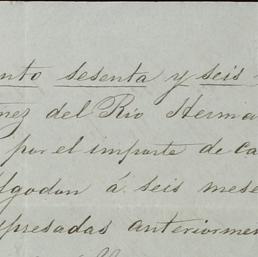 nto sesenta y seis
nez del Río Herma
por el importe de ca
lgodon á seis mese
presadas anteriormen